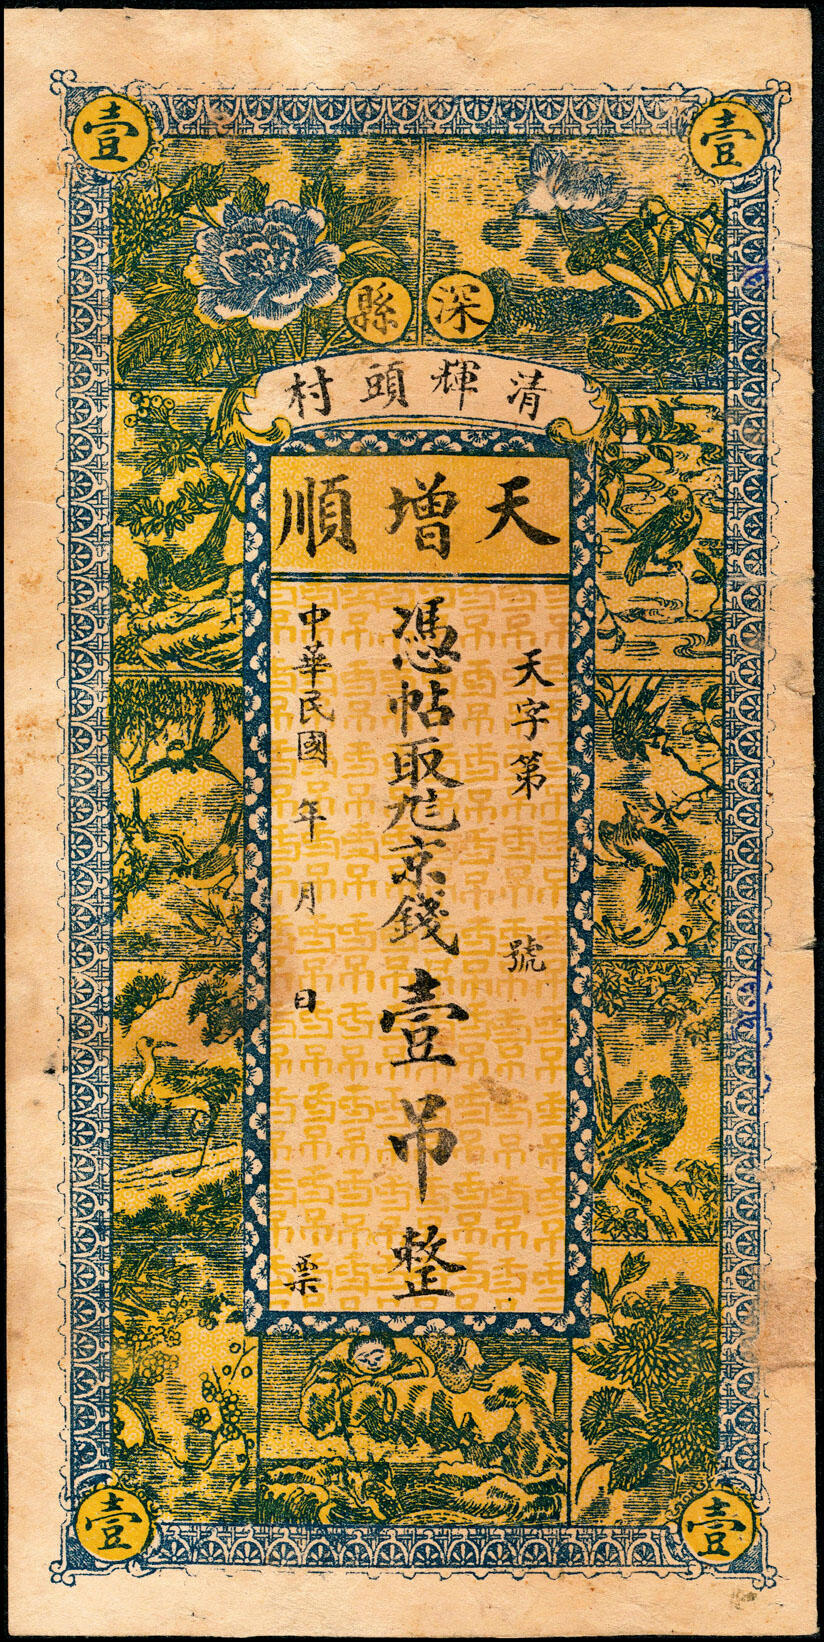 壹
壹
深縣
清輝頭村
天增順
天字第 號
憑帖取尨京錢壹吊整
中華民國 年 月 日 票
壹
壹